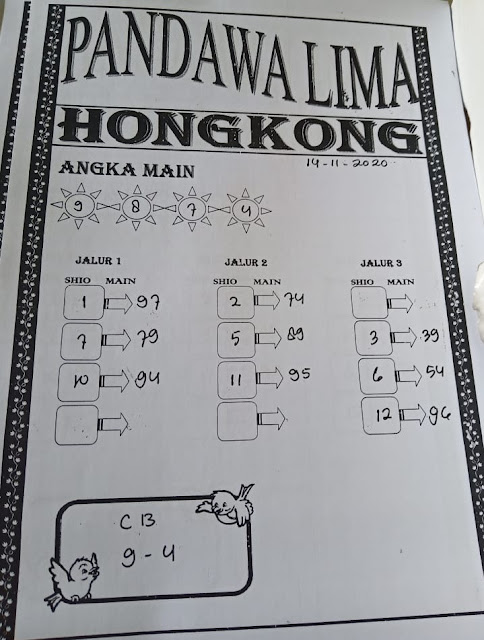 PANDAWA LIMA
HONGKONG
14-11-2020
ANGKA MAIN
9 8 7 4
JALUR 1 JALUR 2 JALUR 3
SHIO MAIN SHIO MAIN SHIO MAIN
1 97 2 74
7 79 5 89 3 39
10 94 11 95 6 54
12 96
C B
9 - 4